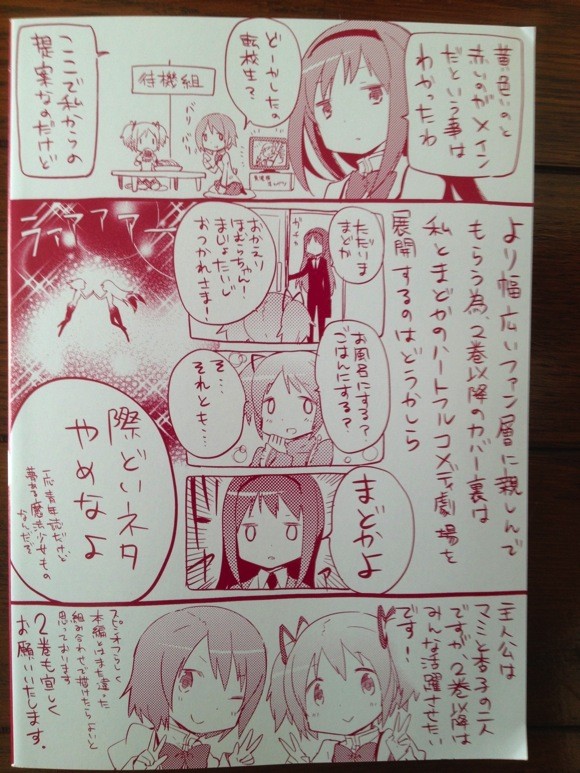 黄色いのと
赤いのがメイン
だという事は
わかったわ
どーかしたの
転校生?
待機組
バリ
バリ
ここで私からの
提案なのだけど
より幅広いファン層に親しんで
もらう為2巻以降のカバー裏は
私とまどかのハートフルコメディ劇場を
展開するのはどうかしら
ただいま
まどか
ガチャ
おかえり
ほむらちゃん!
まじょたいじ
おつかれさま!
お風呂にする?
ごはんにする?
そ…
それとも…
まどかよ
ラァァァァー
際どいネタ
やめなよ
一応青年誌だけど
夢ある魔法少女もの
なんだよ
主人公は
マミと杏子の二人
ですが、2巻以降は
みんな活躍させたい
です!
スピンオフらしく
本編とはまた違った
組み合わせで描けたらよいと
思っております
2巻も宜しく
お願いいたします.